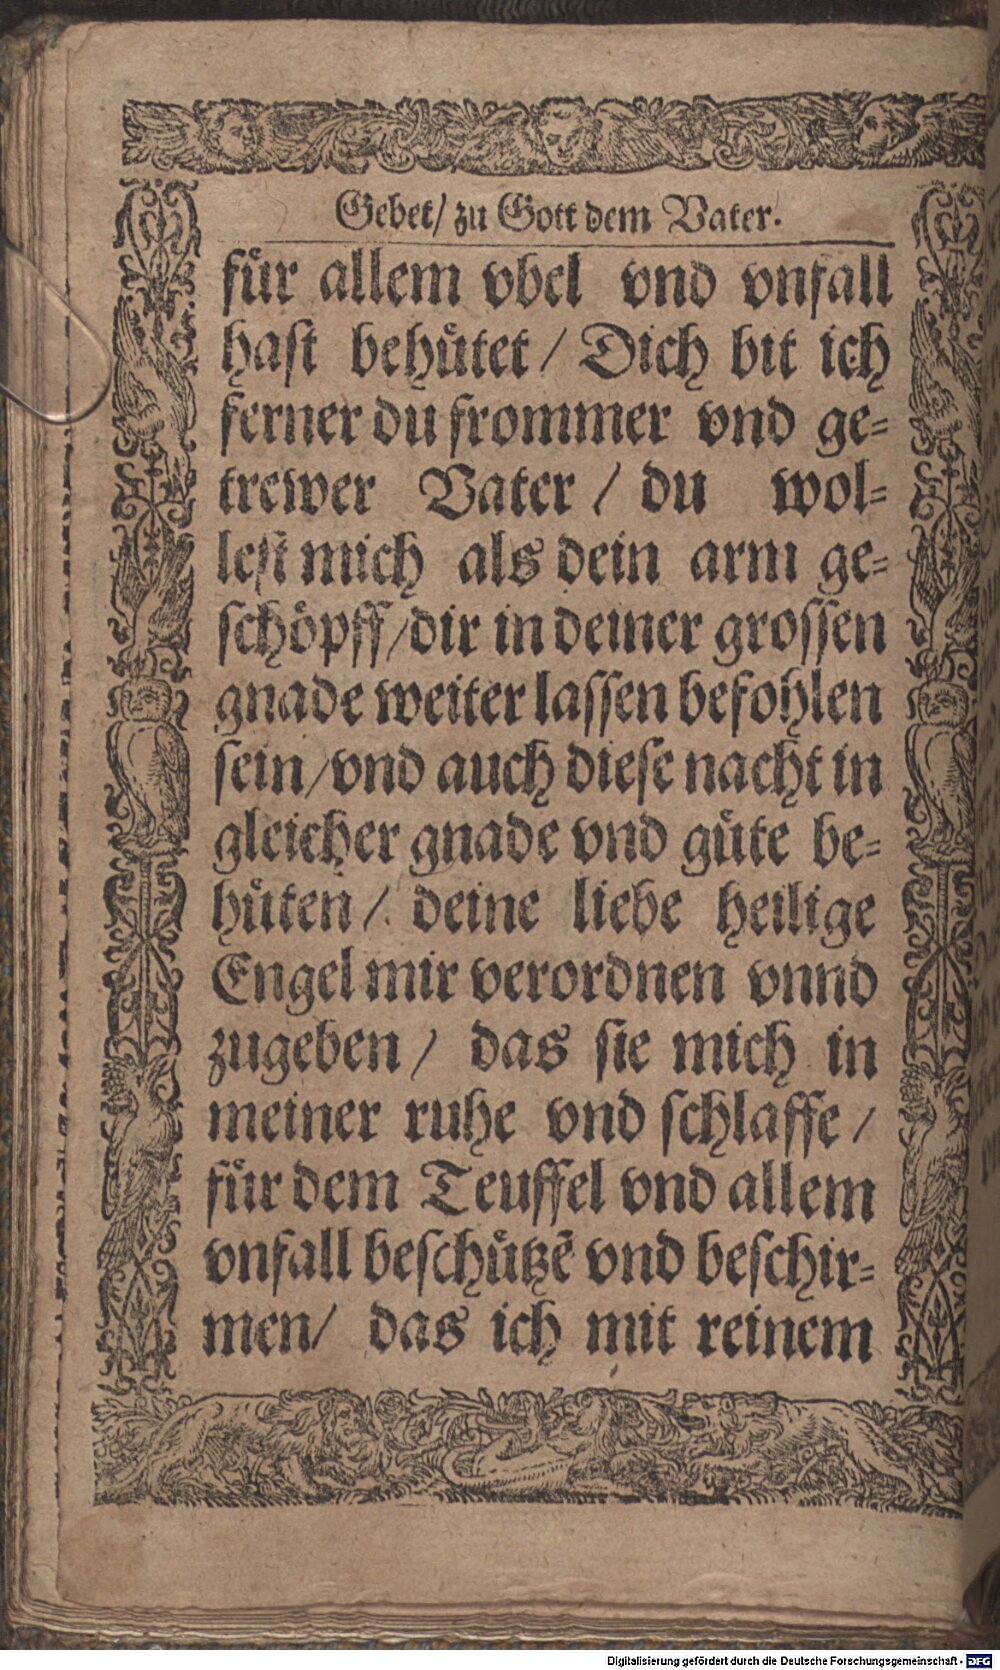 Gebet/ zu Gott dem Vater.
fuͤr allem vbel vnd vnfall
haſt behuͤtet / Dich bit ich
ferner du frommer vnd ge⸗
trewer Vater / du wol⸗
leſt mich als dein arm ge⸗
ſchoͤpff/dir in deiner groſſen
gnade weiter laſſen befohlen
ſein/vnd auch dieſe nacht in
gleicher gnade vnd guͤte be⸗
huͤten / deine liebe heilige
Engel mir verordnen vnnd
zugeben / das ſie mich in
meiner ruhe vnd ſchlaffe /
fuͤr dem Teuffel vnd allem
vnfall beſchuͤtzē vnd beſchir⸗
men/ das ich mit reinem
Digitalisierung gefördert durch die Deutsche Forschungsgemeinschaft - DFG